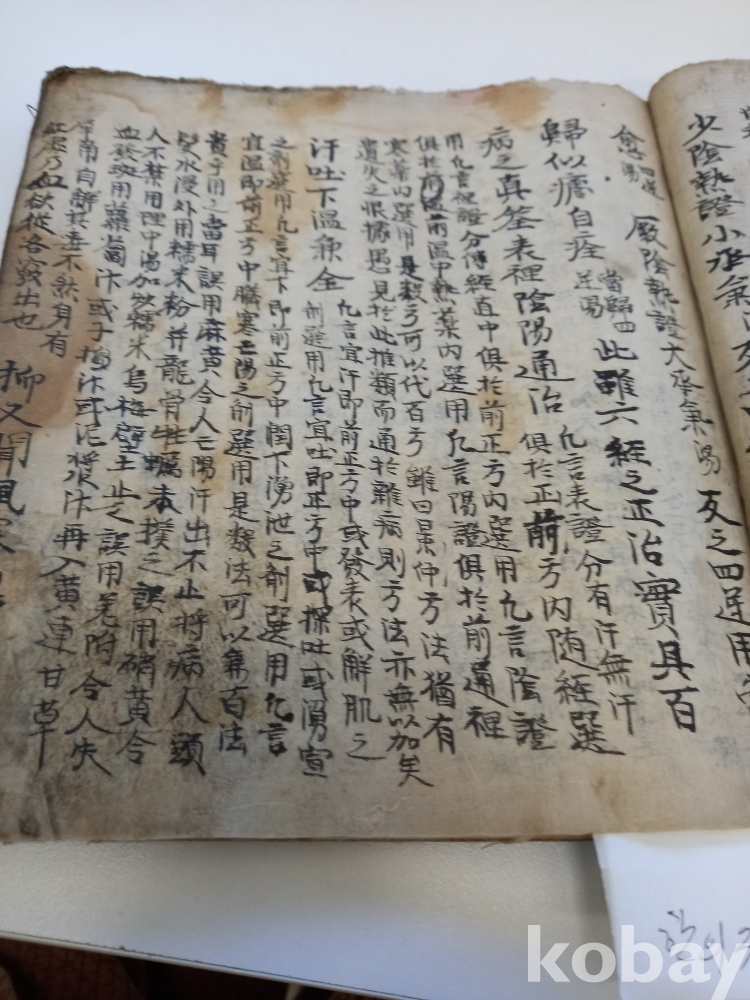 少陰熱證小承氣
厥陰熱證大承氣湯 及之四逆用當
歸似瘧自痊 當歸四逆湯 此雖六經之正治實具百
病之真筌表裡陰陽通治 凡言表證分有汗無汗
俱於正前方內隨經選
用凡言裡證分傳經直中俱於前正方內選用凡言陰證
俱於前溫中熱藥內選用凡言陽證俱於前通裡
寒藥內選用是數方可以代百方雖曰景仲方法猶有
遺失之恨據愚見於此推類而通於雜病則方法亦無以加矣
汗吐下溫兼全 凡言宜汗即前正方中或發表或解肌之
劑選用凡言宜吐即正方中或探吐或湧宣
之劑選用凡言宜下即前正方中潤下湧泄之劑選用凡言
宜溫即前正方中臟寒亡陽之劑選用是數法可以兼百法
貴乎用之當耳誤用麻黃令人亡陽汗出不止將病人頭
髮水浸外用糯米粉并龍骨牡蠣末撲之誤用硝黃令
人不禁用理中湯加炒糯米烏梅壁土止之誤用羌附令人失
血發斑用蘿蔔汁或子擂汁或泥漿汁再入黃連甘草
自解其毒不然身有
乃血欲從各竅出也 抑又聞風寒
kobay